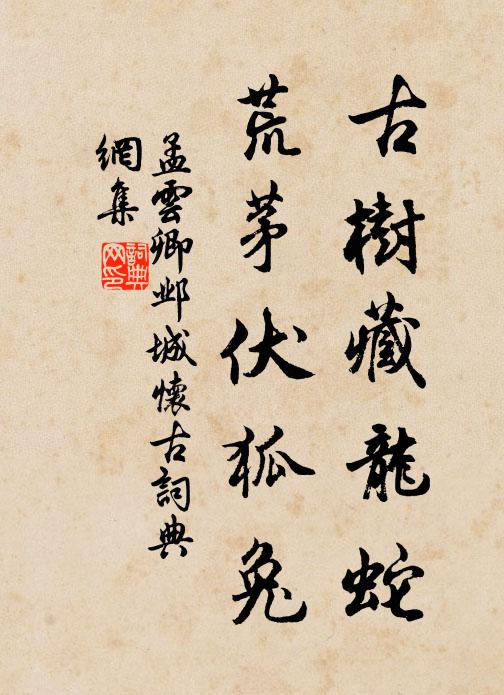 古樹藏龍蛇
荒茅伏狐兔
孟雲卿鄴城懷古詞典
網集
詞典網印